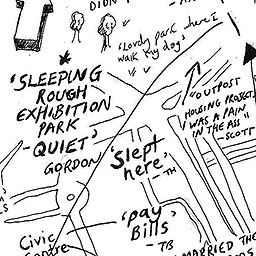 DIDN'T
'Lovely park where I
walk my dog'
'SLEEPING
ROUGH
EXHIBITION
PARK
- QUIET'
GORDON
"OUTPOST
HOUSING PROJECT,
I WAS A PAIN
IN THE ASS"
- SCOTT
'Slept
here'
- TH
'pay
Bills'
- TB
Civic
Centre
MARRIED THE